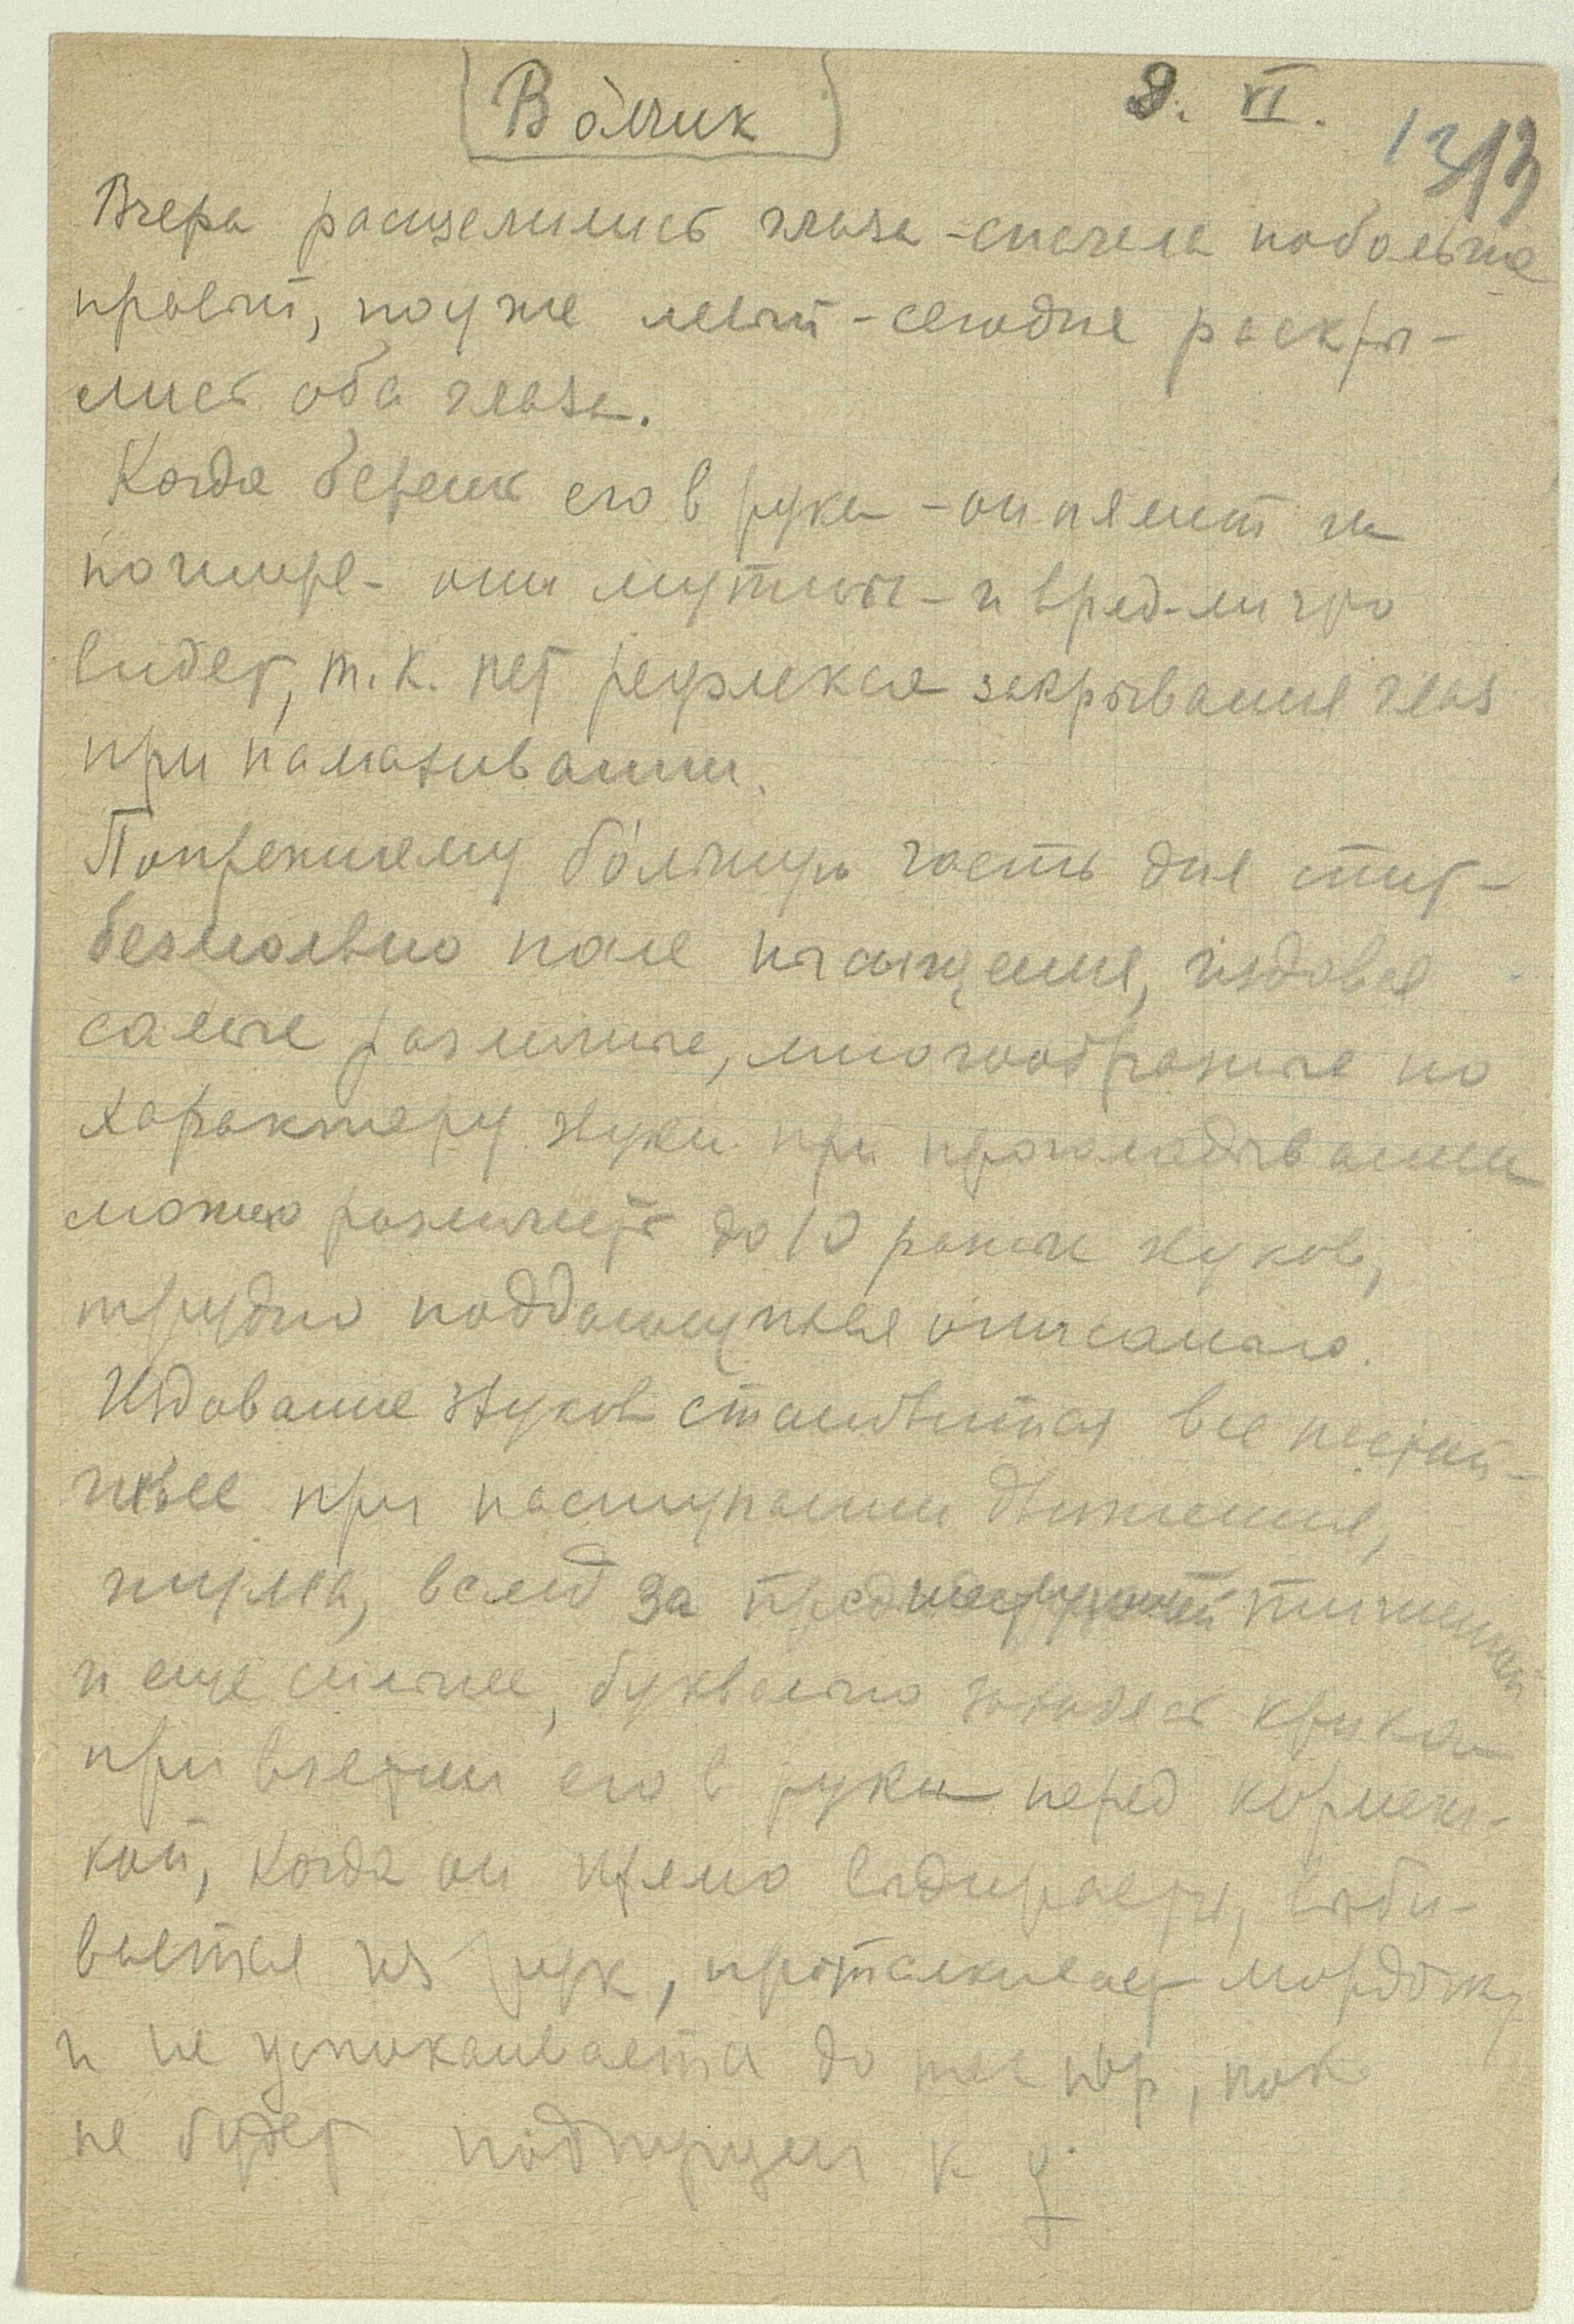 Вóлчик 8. VI. 13 13
Вчера расщелились глаза - сначала побольше
правый, поуже левый - сегодня раскры-
лись оба глаза.
Когда берешь его в руки - он пялит их
пошире - они мутные - и вряд-ли что
видет, т.к. нет рефлекса закрывания глаз
при намазывании.
Попрежнему бóльшую часть дня спит -
безмолвно после насыщения, издавая
самые различные, многообразные по
характеру звуки при проголадывании
можно различить до 10 разных звуков,
трудно поддающихся описанию.
Издавание звуков становится все настой-
чивее при наступании движения,
шума, вслед за предшествующей тишиной
и еще сильнее, буквально заходясь криком
при взятии его в руки перед кормеж-
кой, когда он прямо выдирается, выби-
вается из рук, проталкивает мордочку
и не успокаивается до тех пор, пока
не будет подпущен к ♀